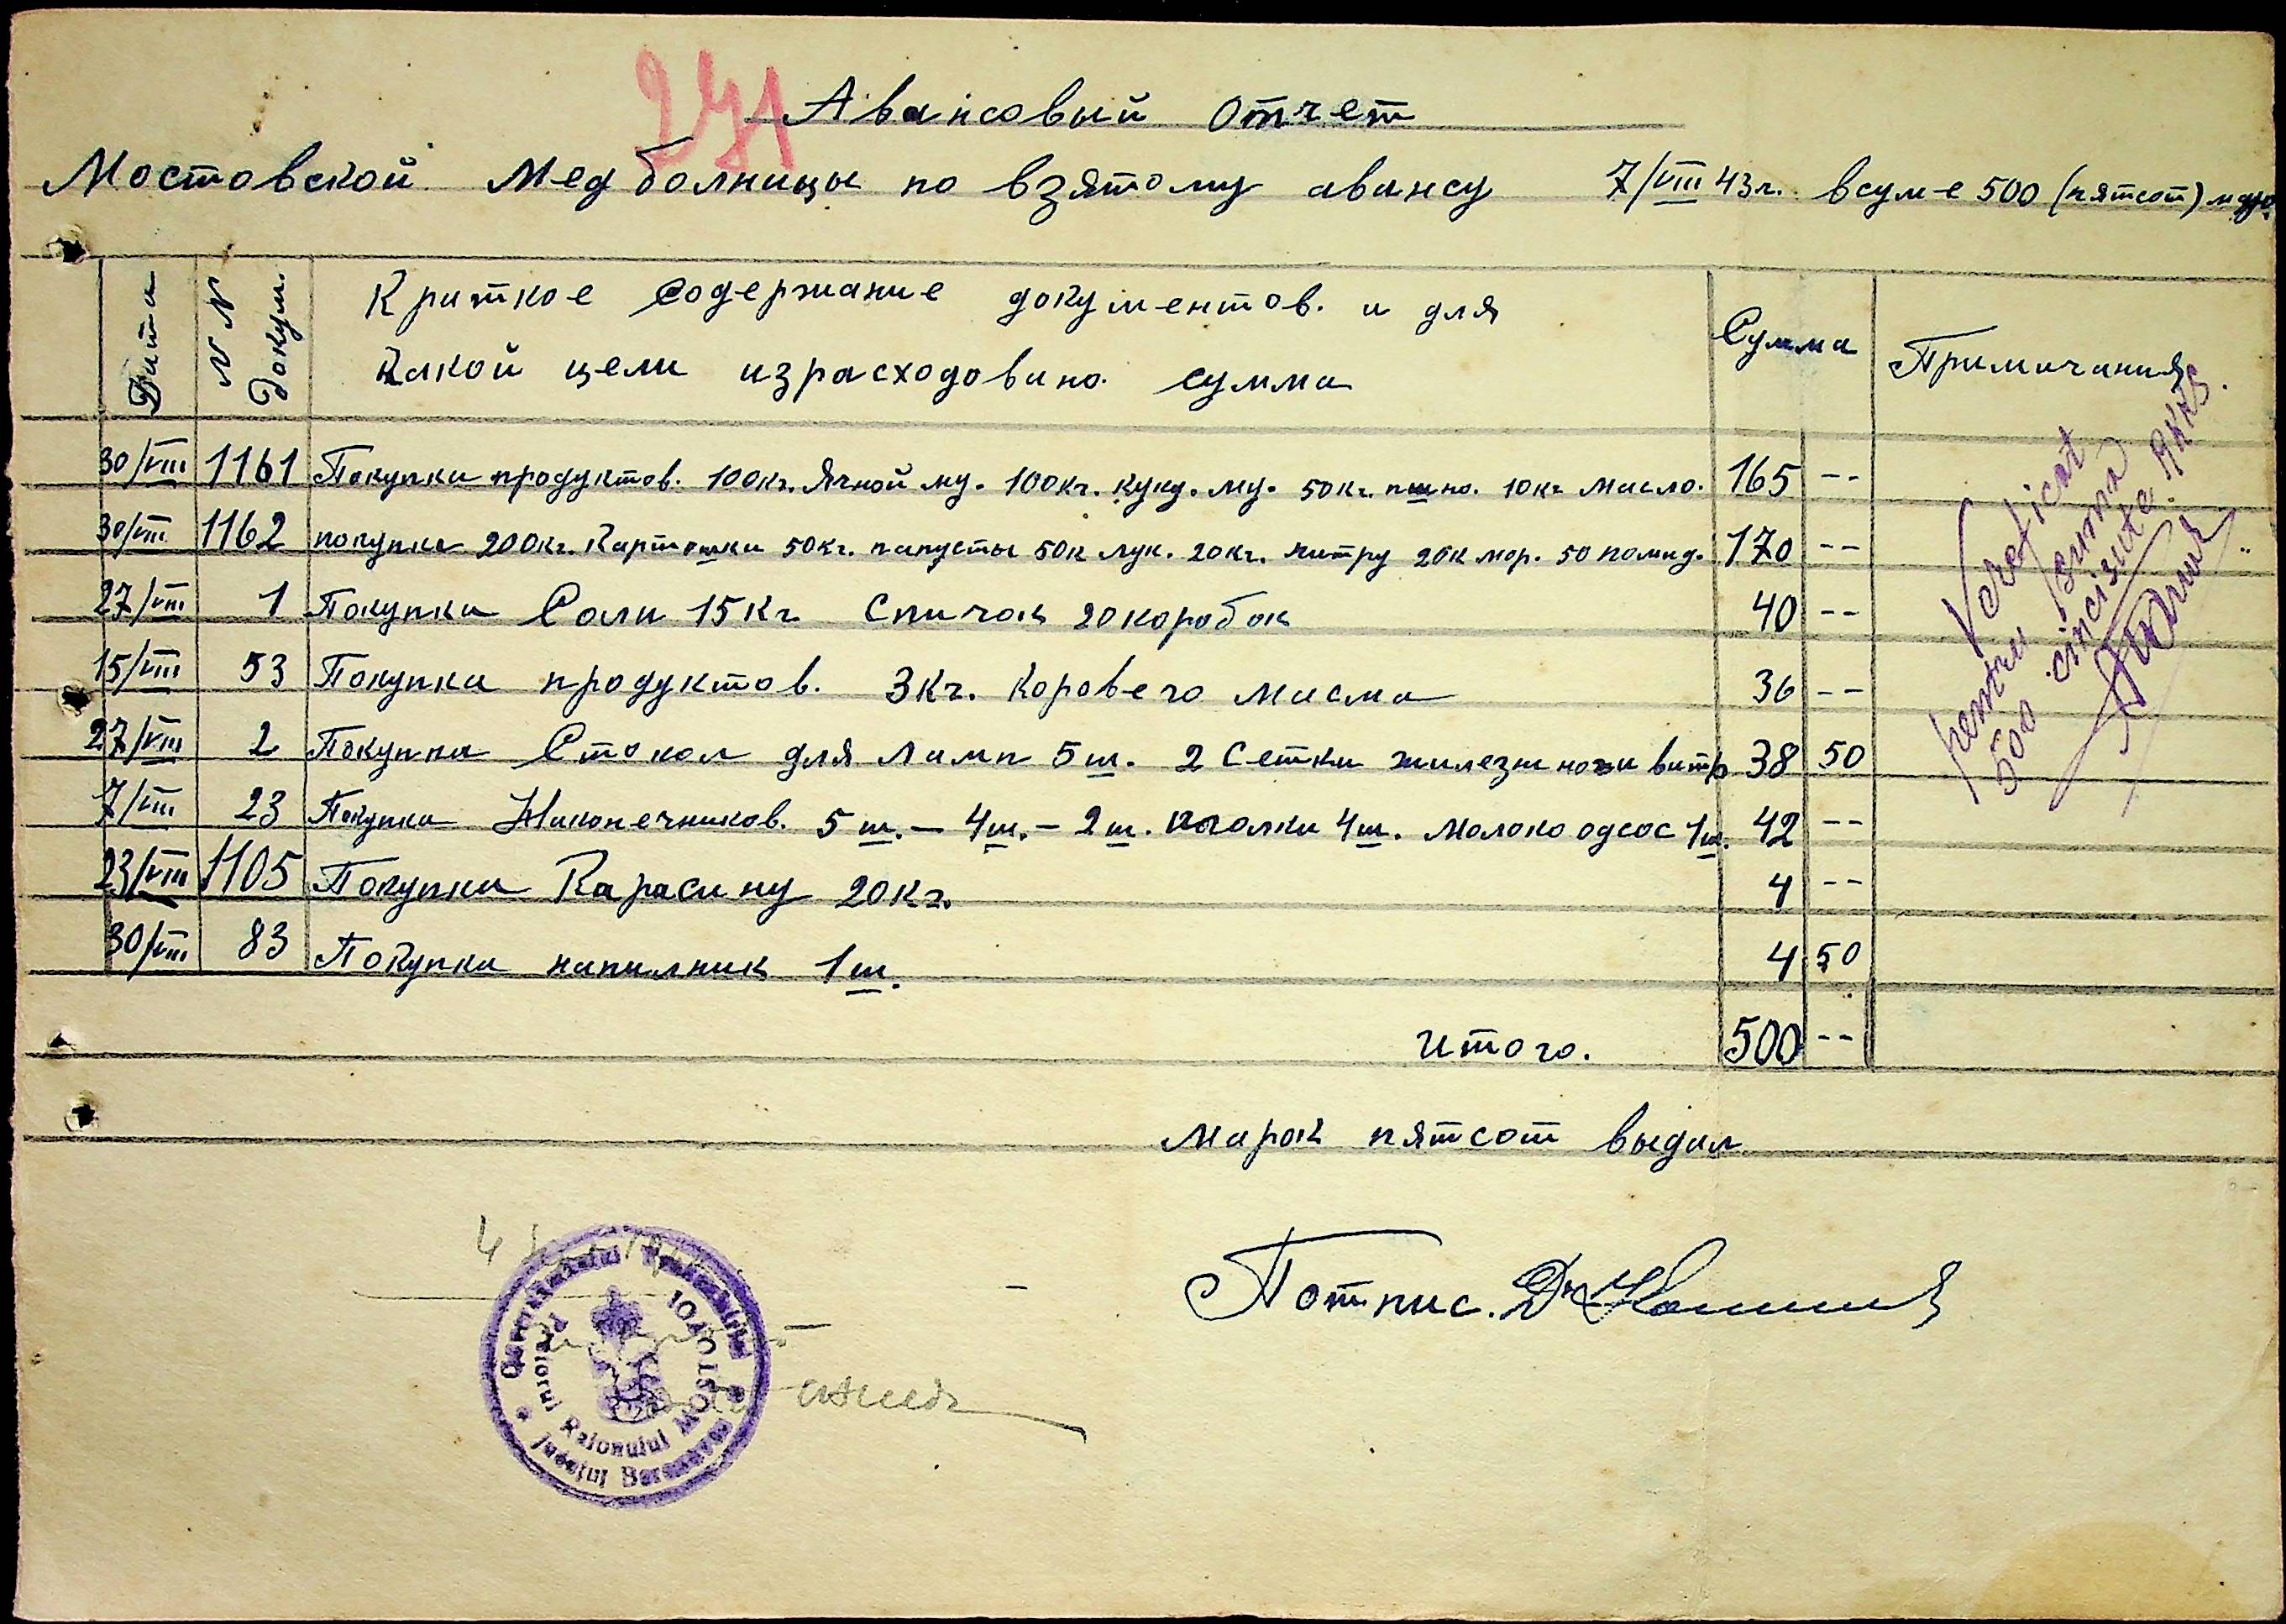 271
Авансовый отчет
Мостовской Мед болницы по взятому авансу 7/VIII 43г. в сум-е 500 (пятсот)
Дата
N N Докум.
Краткое содержание документов. и для
какой цели израсходовано сумма
Сумма
Примичания
30/VIII 1161 Покупка продуктов. 100кг. Ячной му. 100кг. куку. му. 50кг. пшно. 10кг масло. 165 --
30/VIII 1162 покупка 200кг. Картошки 50кг. капусты 50к лук. 20кг. 20к мор. 50 помид. 170 --
27/VIII 1 Покупка Соли 15кг спичок 20 коробок 40 --
15/VIII 53 Покупка продуктов. 3кг. коровего масма 36 --
27/VIII 2 Покупка Стокол для ламп 5ш. 2 сетки 38 50
7/VIII 23 Покупка Наконечников. 5ш. – 4ш. – 2ш. иголки 4ш. Молоко одсос 1ш. 42 --
23/VIII 1105 Покупка Карасину 20кг. 4 --
30/VIII 83 Покупка напилник 1ш. 4 50
итого. 500 --
марок пятсот выдал
Verificat
pentru suma
500 cincisute RKKS.
Потпис. Dr
Guvernământul Transnistriei
Județul Berezovca
Pretorul Raionului MOSTOVOI